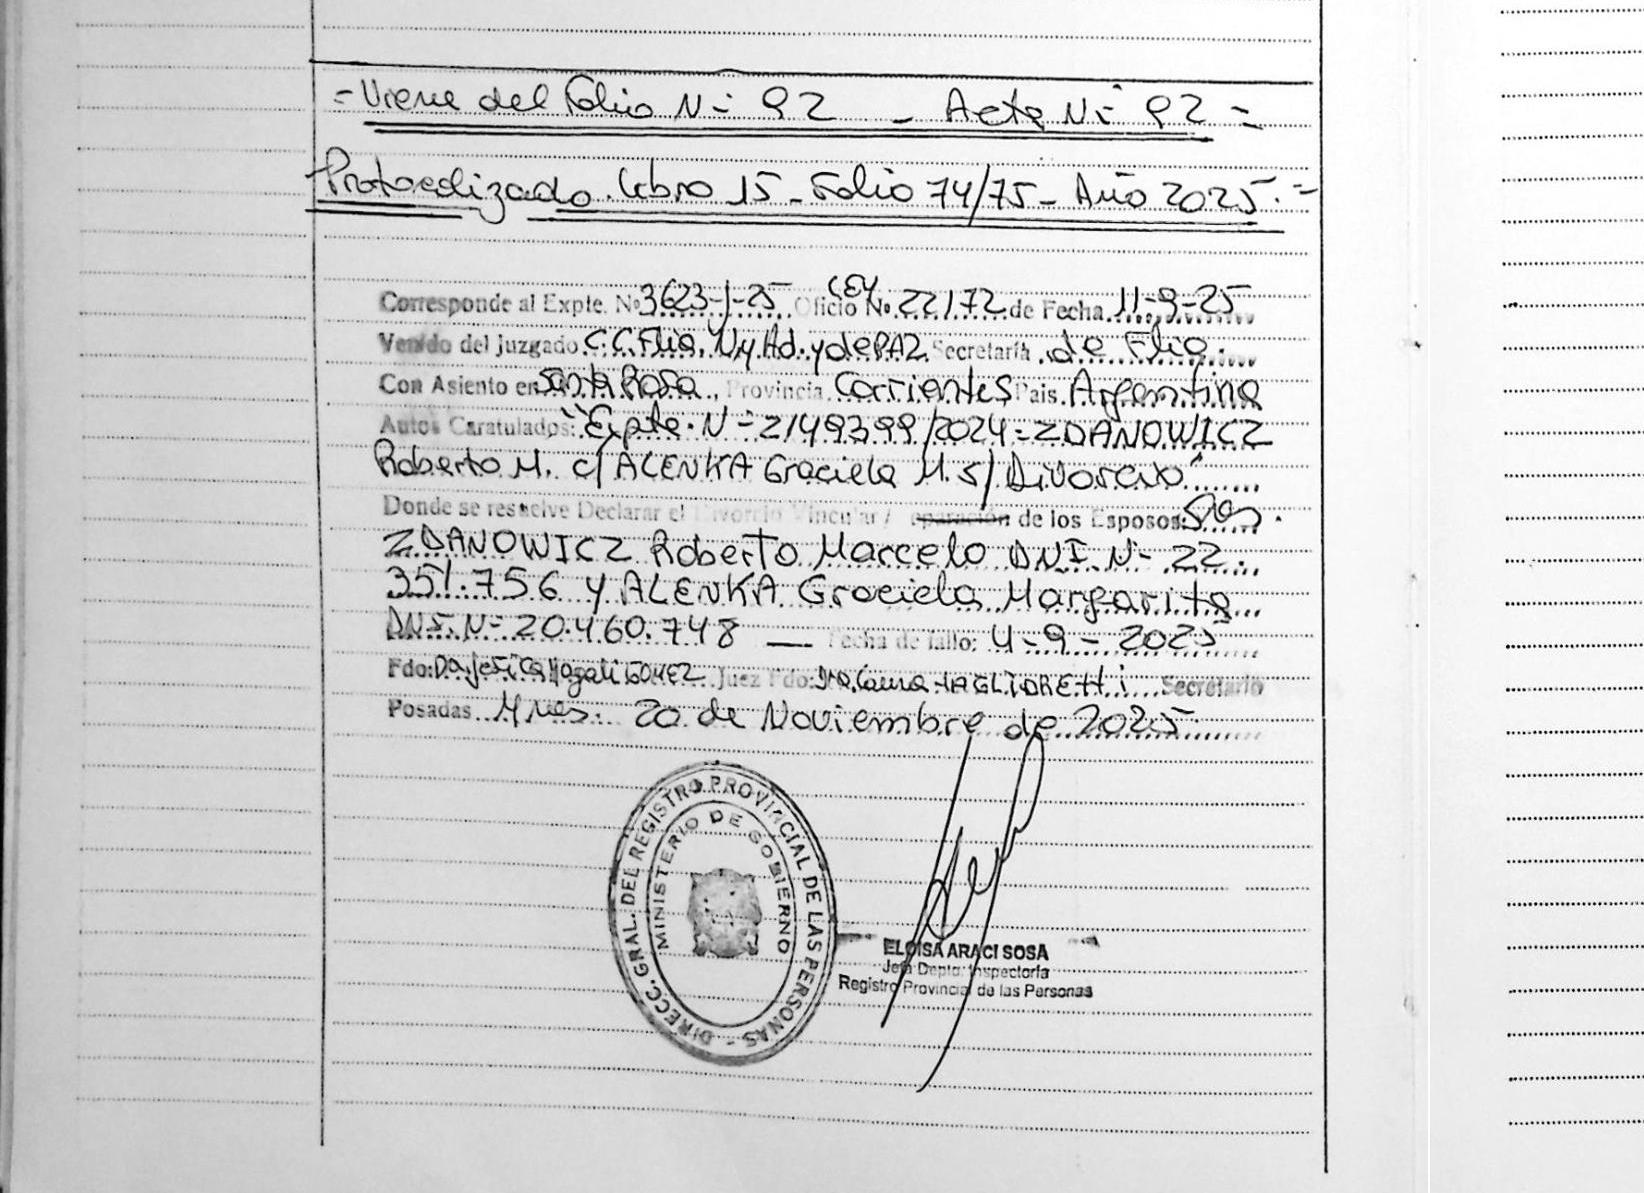 = Viene del Folio Nº 92 - Acta Nº 92 =
Protocolizado. Libro 15 - Folio 74/75 - Año 2025.=
Corresponde al Expte. Nº 3623-J-25 Oficio CEY Nº 22172 de Fecha 11-9-25
Venido del juzgado C.C.Flia, N y Ad. y de PAZ Secretaría de Flia.
Con Asiento en Santa Rosa, Provincia Corrientes Pais. Argentina
Autos Caratulados: "Expte. Nº 2149399/2024 - ZDANOWICZ
Roberto M. c/ ALENKA Graciela M. s/ Divorcio"
Donde se resuelve Declarar el Divorcio Vincular / eparación de los Esposos: Sres.
ZDANOWICZ Roberto Marcelo DNI Nº 22.
351.756 y ALENKA Graciela Margarita
DNI. Nº 20.460.748 — Fecha de fallo: 4-9-2025
Fdo: Dra Jesica Magali GOMEZ Juez Fdo: Dra. Laura MAGLIORETTI Secretario
Posadas Mnes. 20 de Noviembre de 2025
DIRECC. GRAL. DEL REGISTRO PROVINCIAL DE LAS PERSONAS -
MINISTERIO DE GOBIERNO
ELOISA ARACI SOSA
Jefa Depto. Inspectoría
Registro Provincial de las Personas